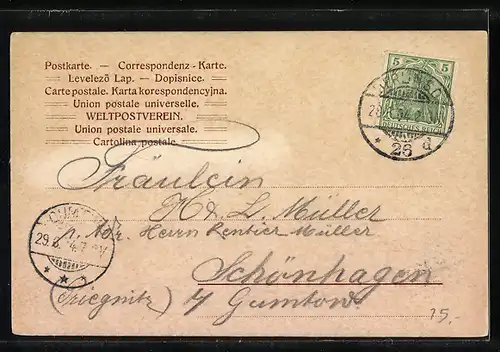 Postkarte. — Correspondenz-Karte.
Levelezõ Lap. — Dopisnice.
Carte postale. Karta korespondencyjna.
Union postale universelle.
WELTPOSTVEREIN.
Union postale universale.
Cartolina postale.
5 5
DEUTSCHES REICH
26 d
Fräulein
L. Müller
p. Adr. Herrn Rentier Müller
Schönhagen
(Priegnitz) b/ Gumtow.
29.
75.-